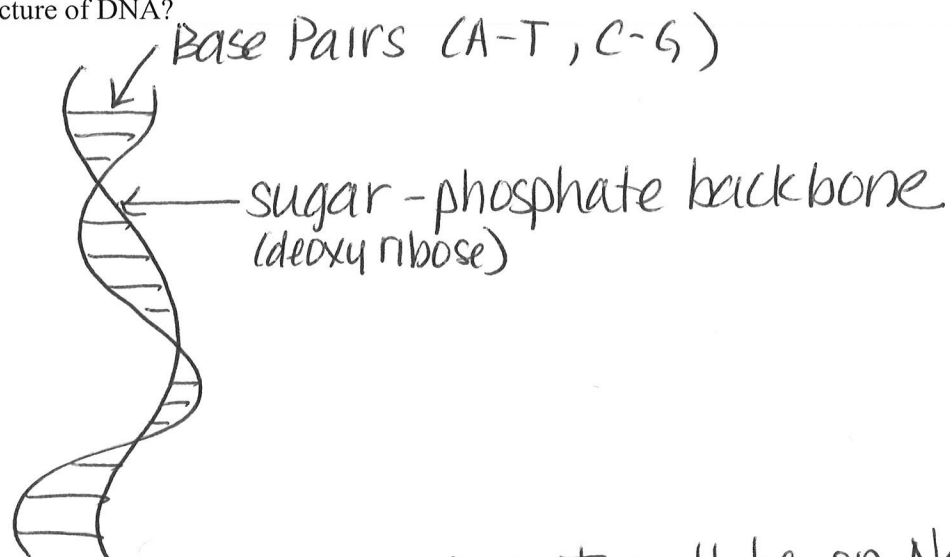 cture of DNA?
Base Pairs (A-T, C-G)
sugar-phosphate backbone
(deoxyribose)